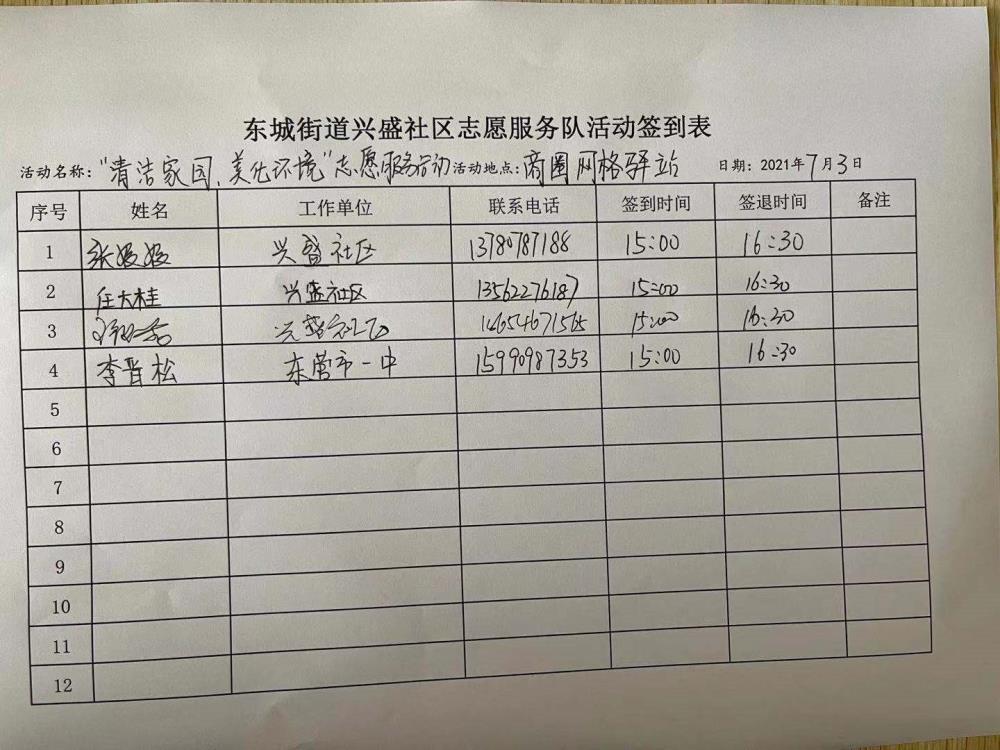 东城街道兴盛社区志愿服务队活动签到表
活动名称："清洁家园、美化环境"志愿服务活动 活动地点：商圈网格驿站 日期：2021年7月3日
序号 姓名 工作单位 联系电话 签到时间 签退时间 备注
1 张媛媛 兴盛社区 13780787188 15:00 16:30
2 任大桂 兴盛社区 13562276187 15:00 16:30
3 兴盛社区 14654671565 15:00 16:30
4 李晋松 东营市一中 15990987353 15:00 16:30
5
6
7
8
9
10
11
12